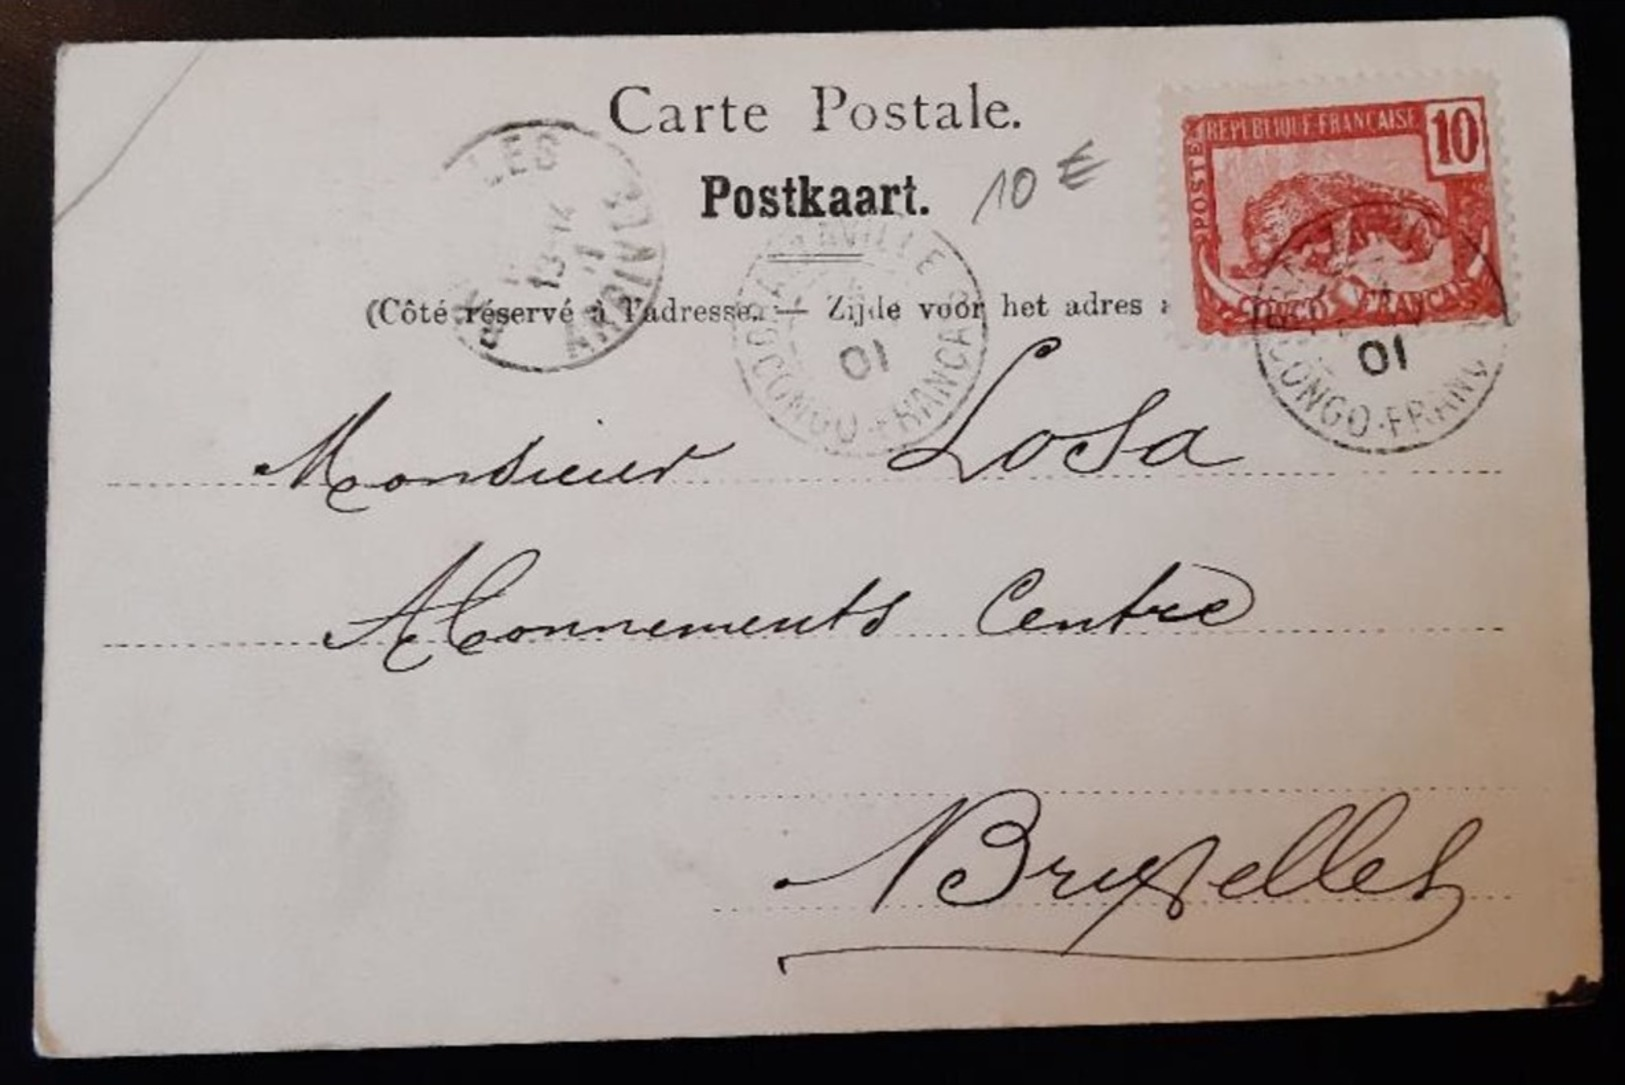 Carte Postale.
Postkaart.
10 €
REPUBLIQUE FRANÇAISE 10
POSTES
CONGO FRANÇAIS
13-14
ARRIVÉE
01
CONGO-FRANÇA
01
CONGO-FRANÇ
(Côté réservé à l'adresse. — Zijde voor het adres
Monsieur Losa
Abonnements Centre
Bruxelles